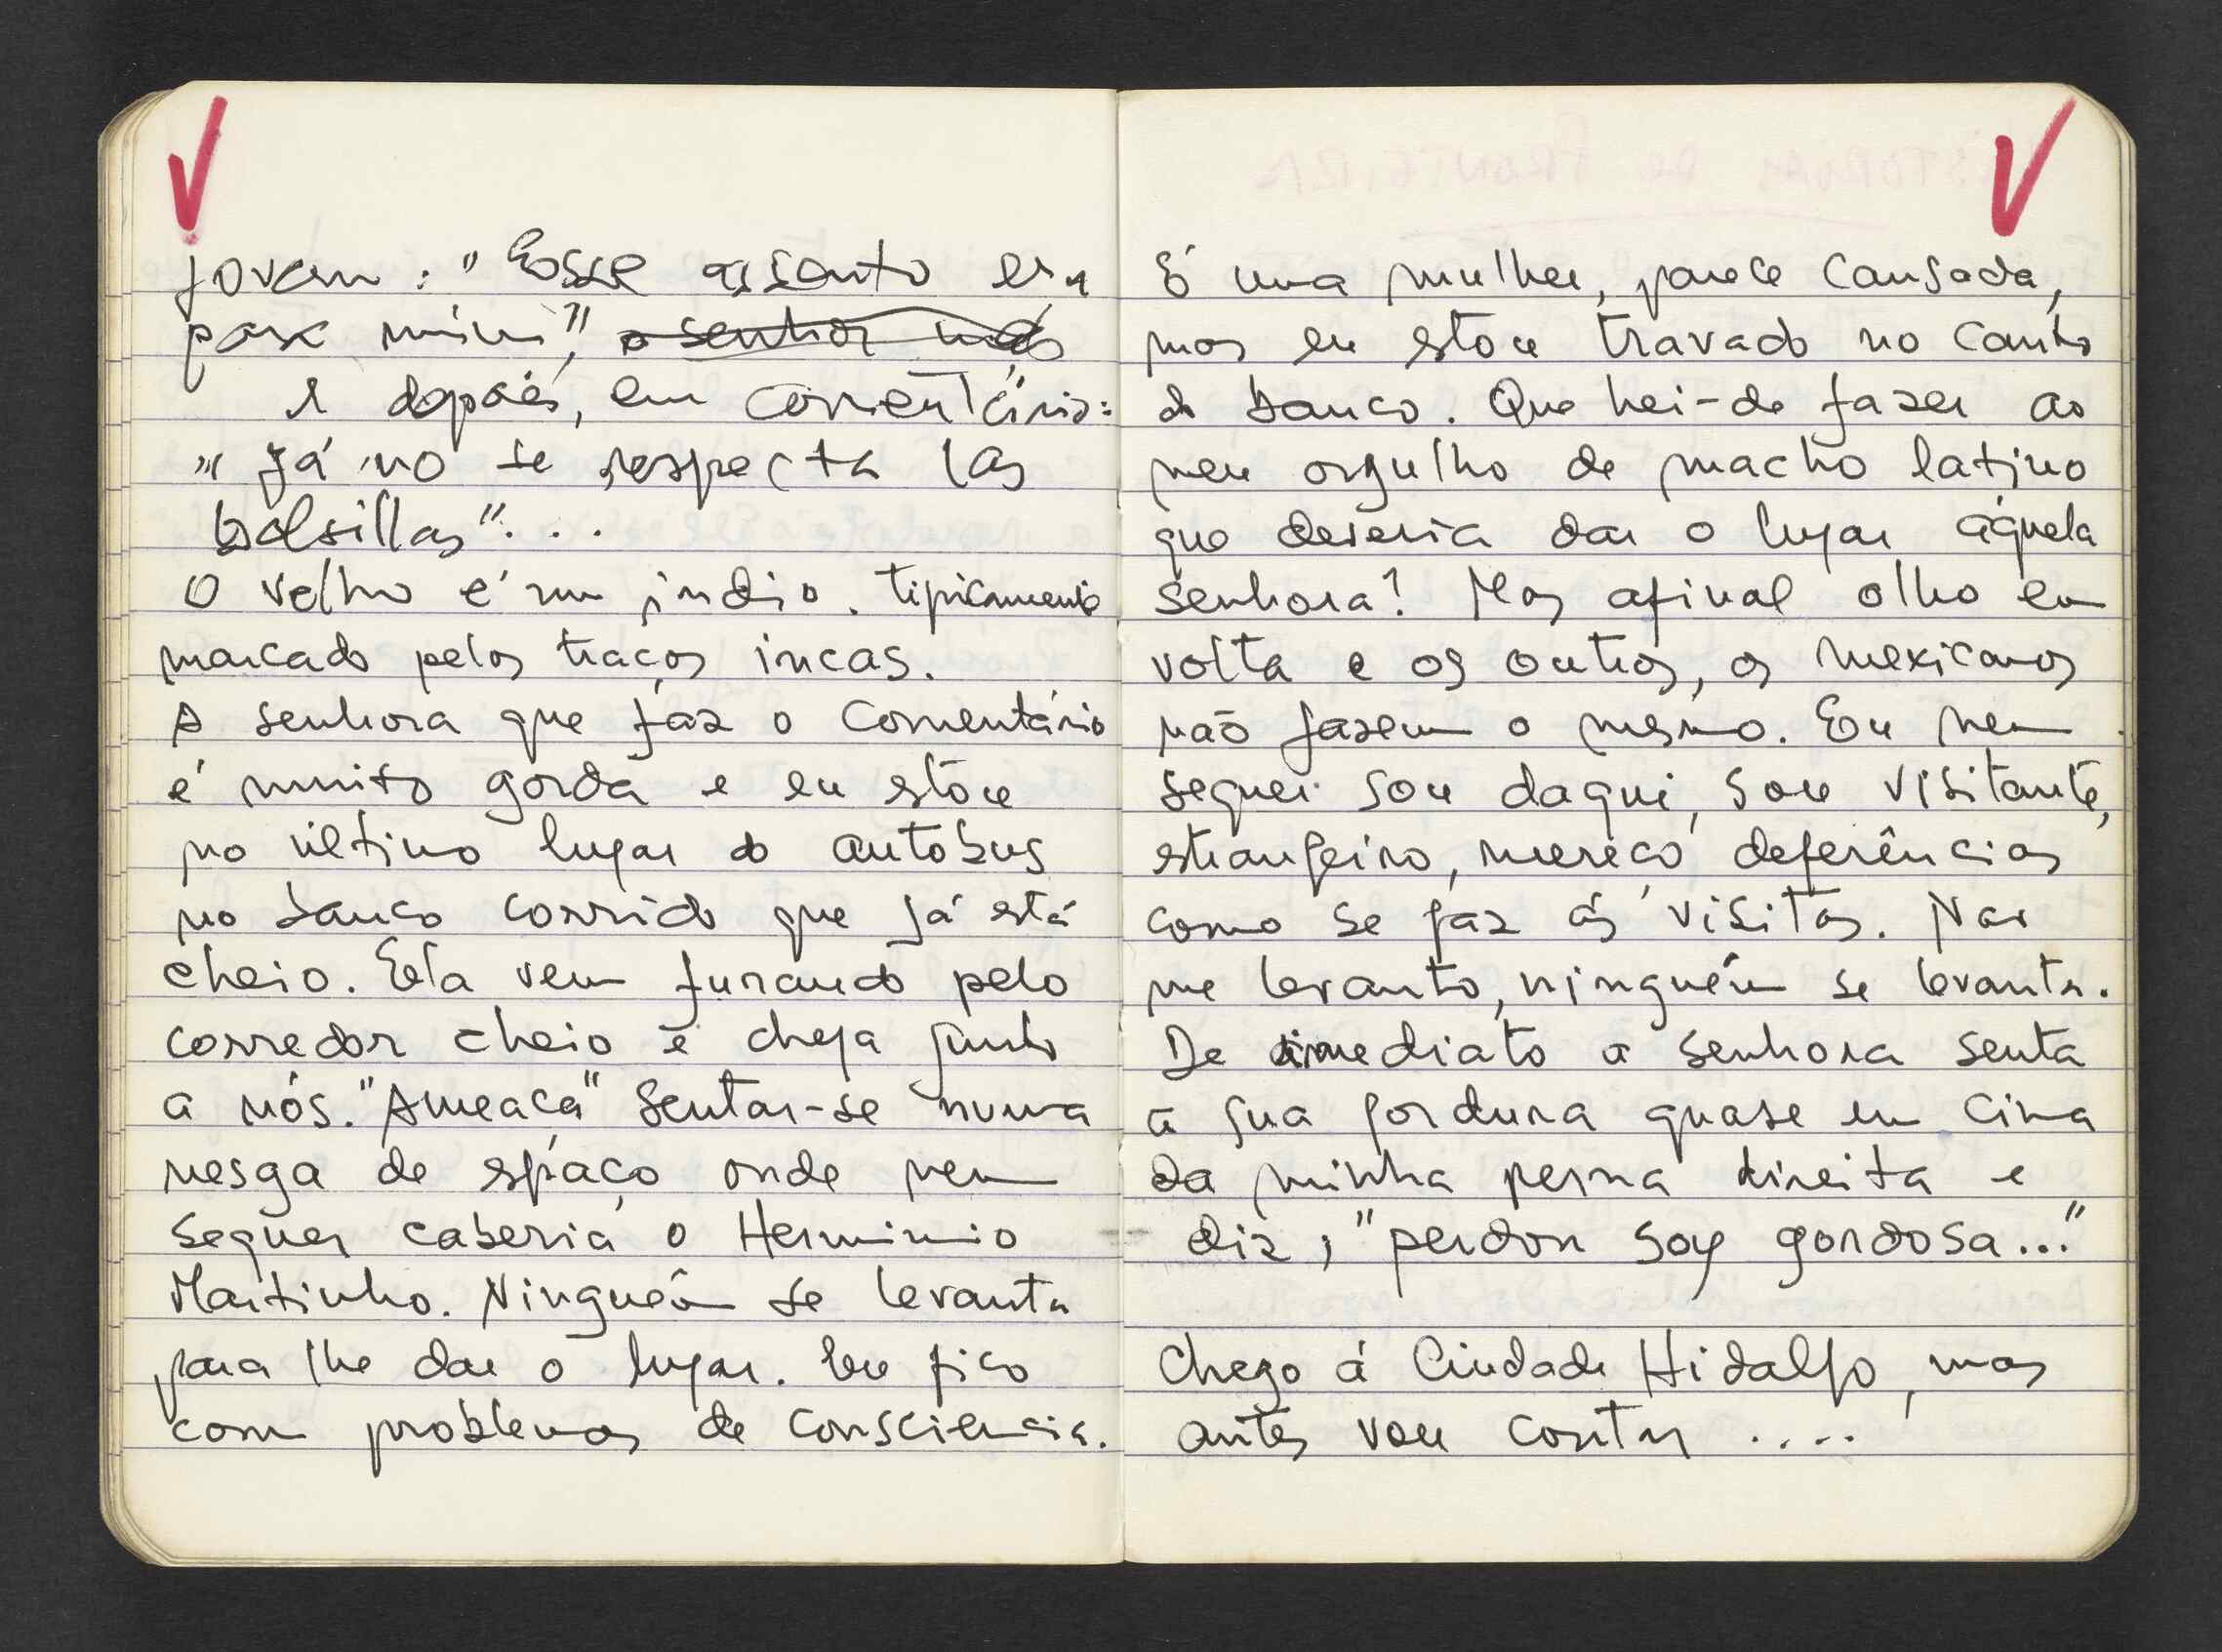 Jovem: "Esse assento era
para mim", o senhor não
e depois, em comentário:
"Já no se respecta las
bolsillas"...
O velho é um índio. tipicamente
marcado pelos traços incas.
A senhora que faz o comentário
é muito gorda e eu estou
no último lugar do autobus
no banco corrido que já está
cheio. Ela vem furando pelo
corredor cheio e chega junto
a nós. "Ameaça" sentar-se numa
nesga de espaço onde nem
sequer caberia o Herminio
Martinho. Ninguém se levanta
para lhe dar o lugar. Eu fico
com problemas de consciencia.
É uma mulher, parece cansada,
mas eu estou travado no canto
do banco. Que hei-de fazer ao
meu orgulho de macho latino
que deveria dar o lugar àquela
senhora? Mas afinal olho em
volta e os outros, os mexicanos
não fazem o mesmo. Eu nem
sequer sou daqui, sou visitante,
estrangeiro, mereço deferências
como se faz ás visitas. Não
me levanto, ninguém se levanta.
De imediato a senhora senta
a sua gordura quase em cima
da minha perna direita e
diz; "perdon soy gordosa..."
Chego á Ciudade Hidalgo, mas
antes vou contar ....